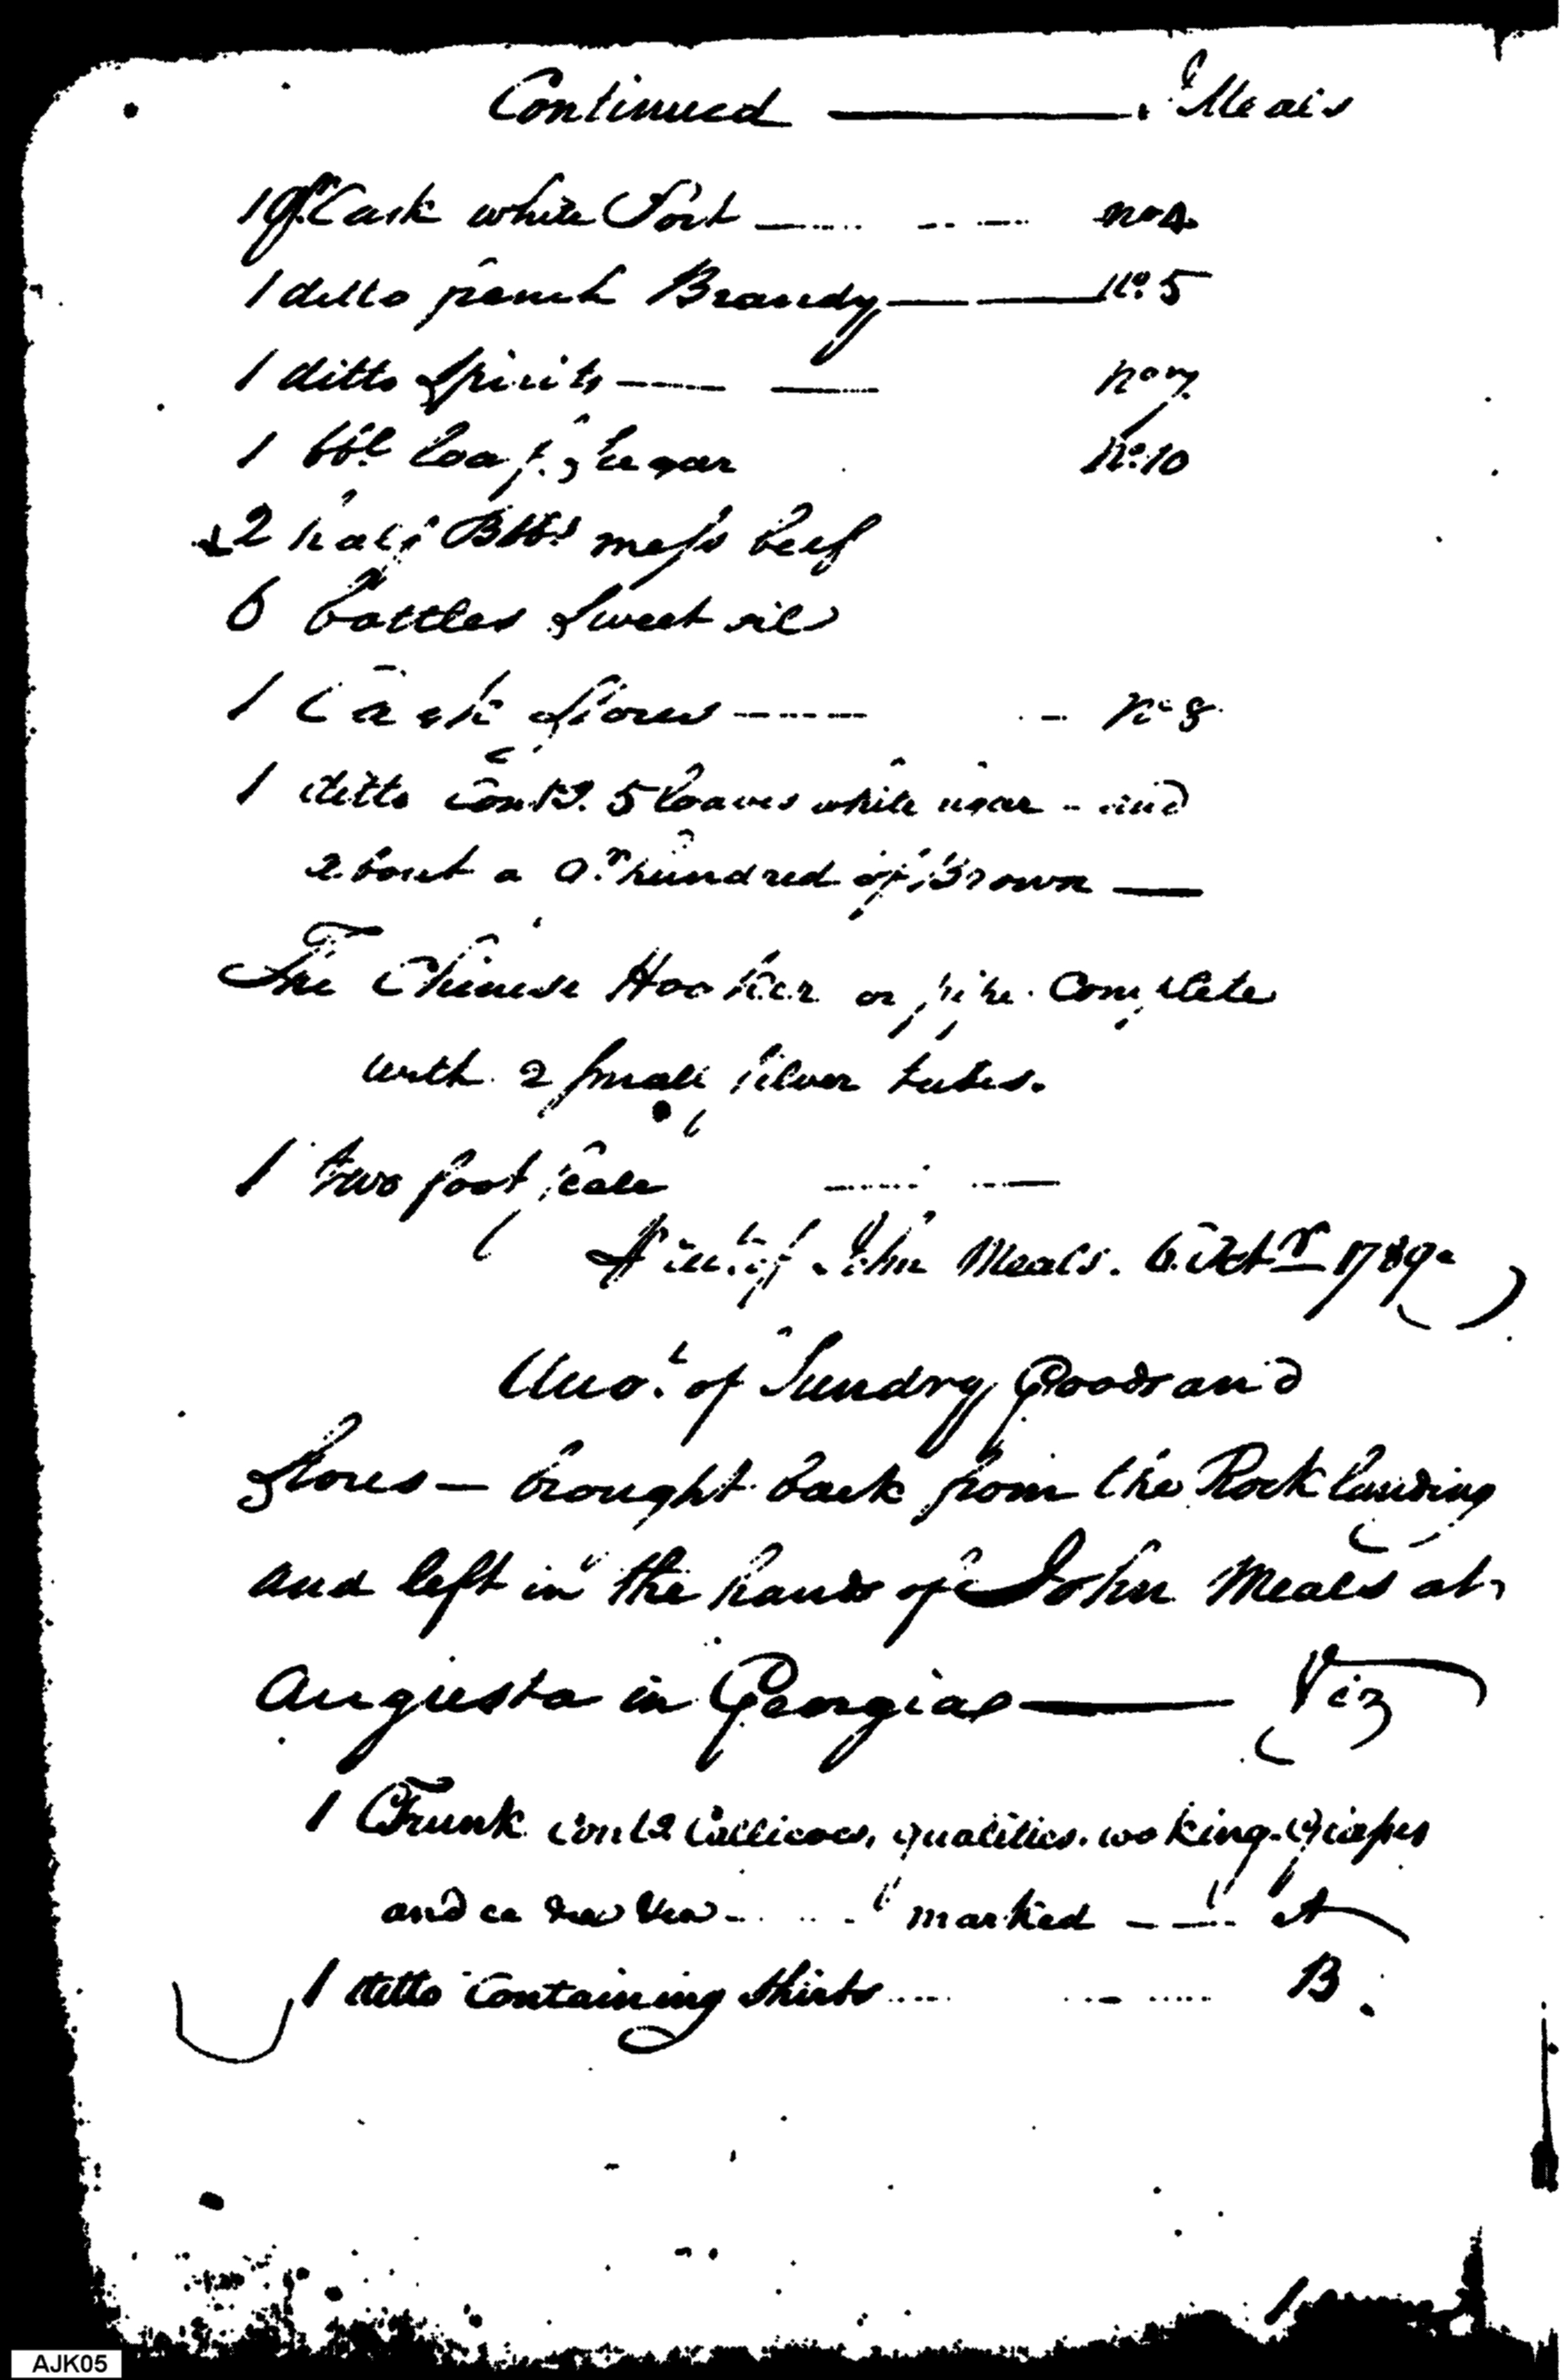 Continued ——— Meals
1 qr. Cask white Port — — — No 4.
1 ditto french Brandy — — No. 5
1 ditto Spirits — — No 7.
1 bbl. loaf Sugar No. 10
2 half Bbls mess beef
6 bottles Sweet oil
1 Cask Stores — — — No 8
1 ditto Contg. 5 loaves white ugar – and
about a qr. hundred of Brown —
The Chinese Hooker or pipe. Complete
with 2 small silver tubes.
1 two foot scale — —
of John Meals. 6. Octr 1789.
Acco.t of Sundry Goods and
Stores — brought back from the Rock landing
and left in the hands of John Meals at
Augusta in Georgia —— Viz
1 Trunk Contg Callicoes, qualities.
and marked — — A
1 ditto Containing Shirts — — B.
AJK05